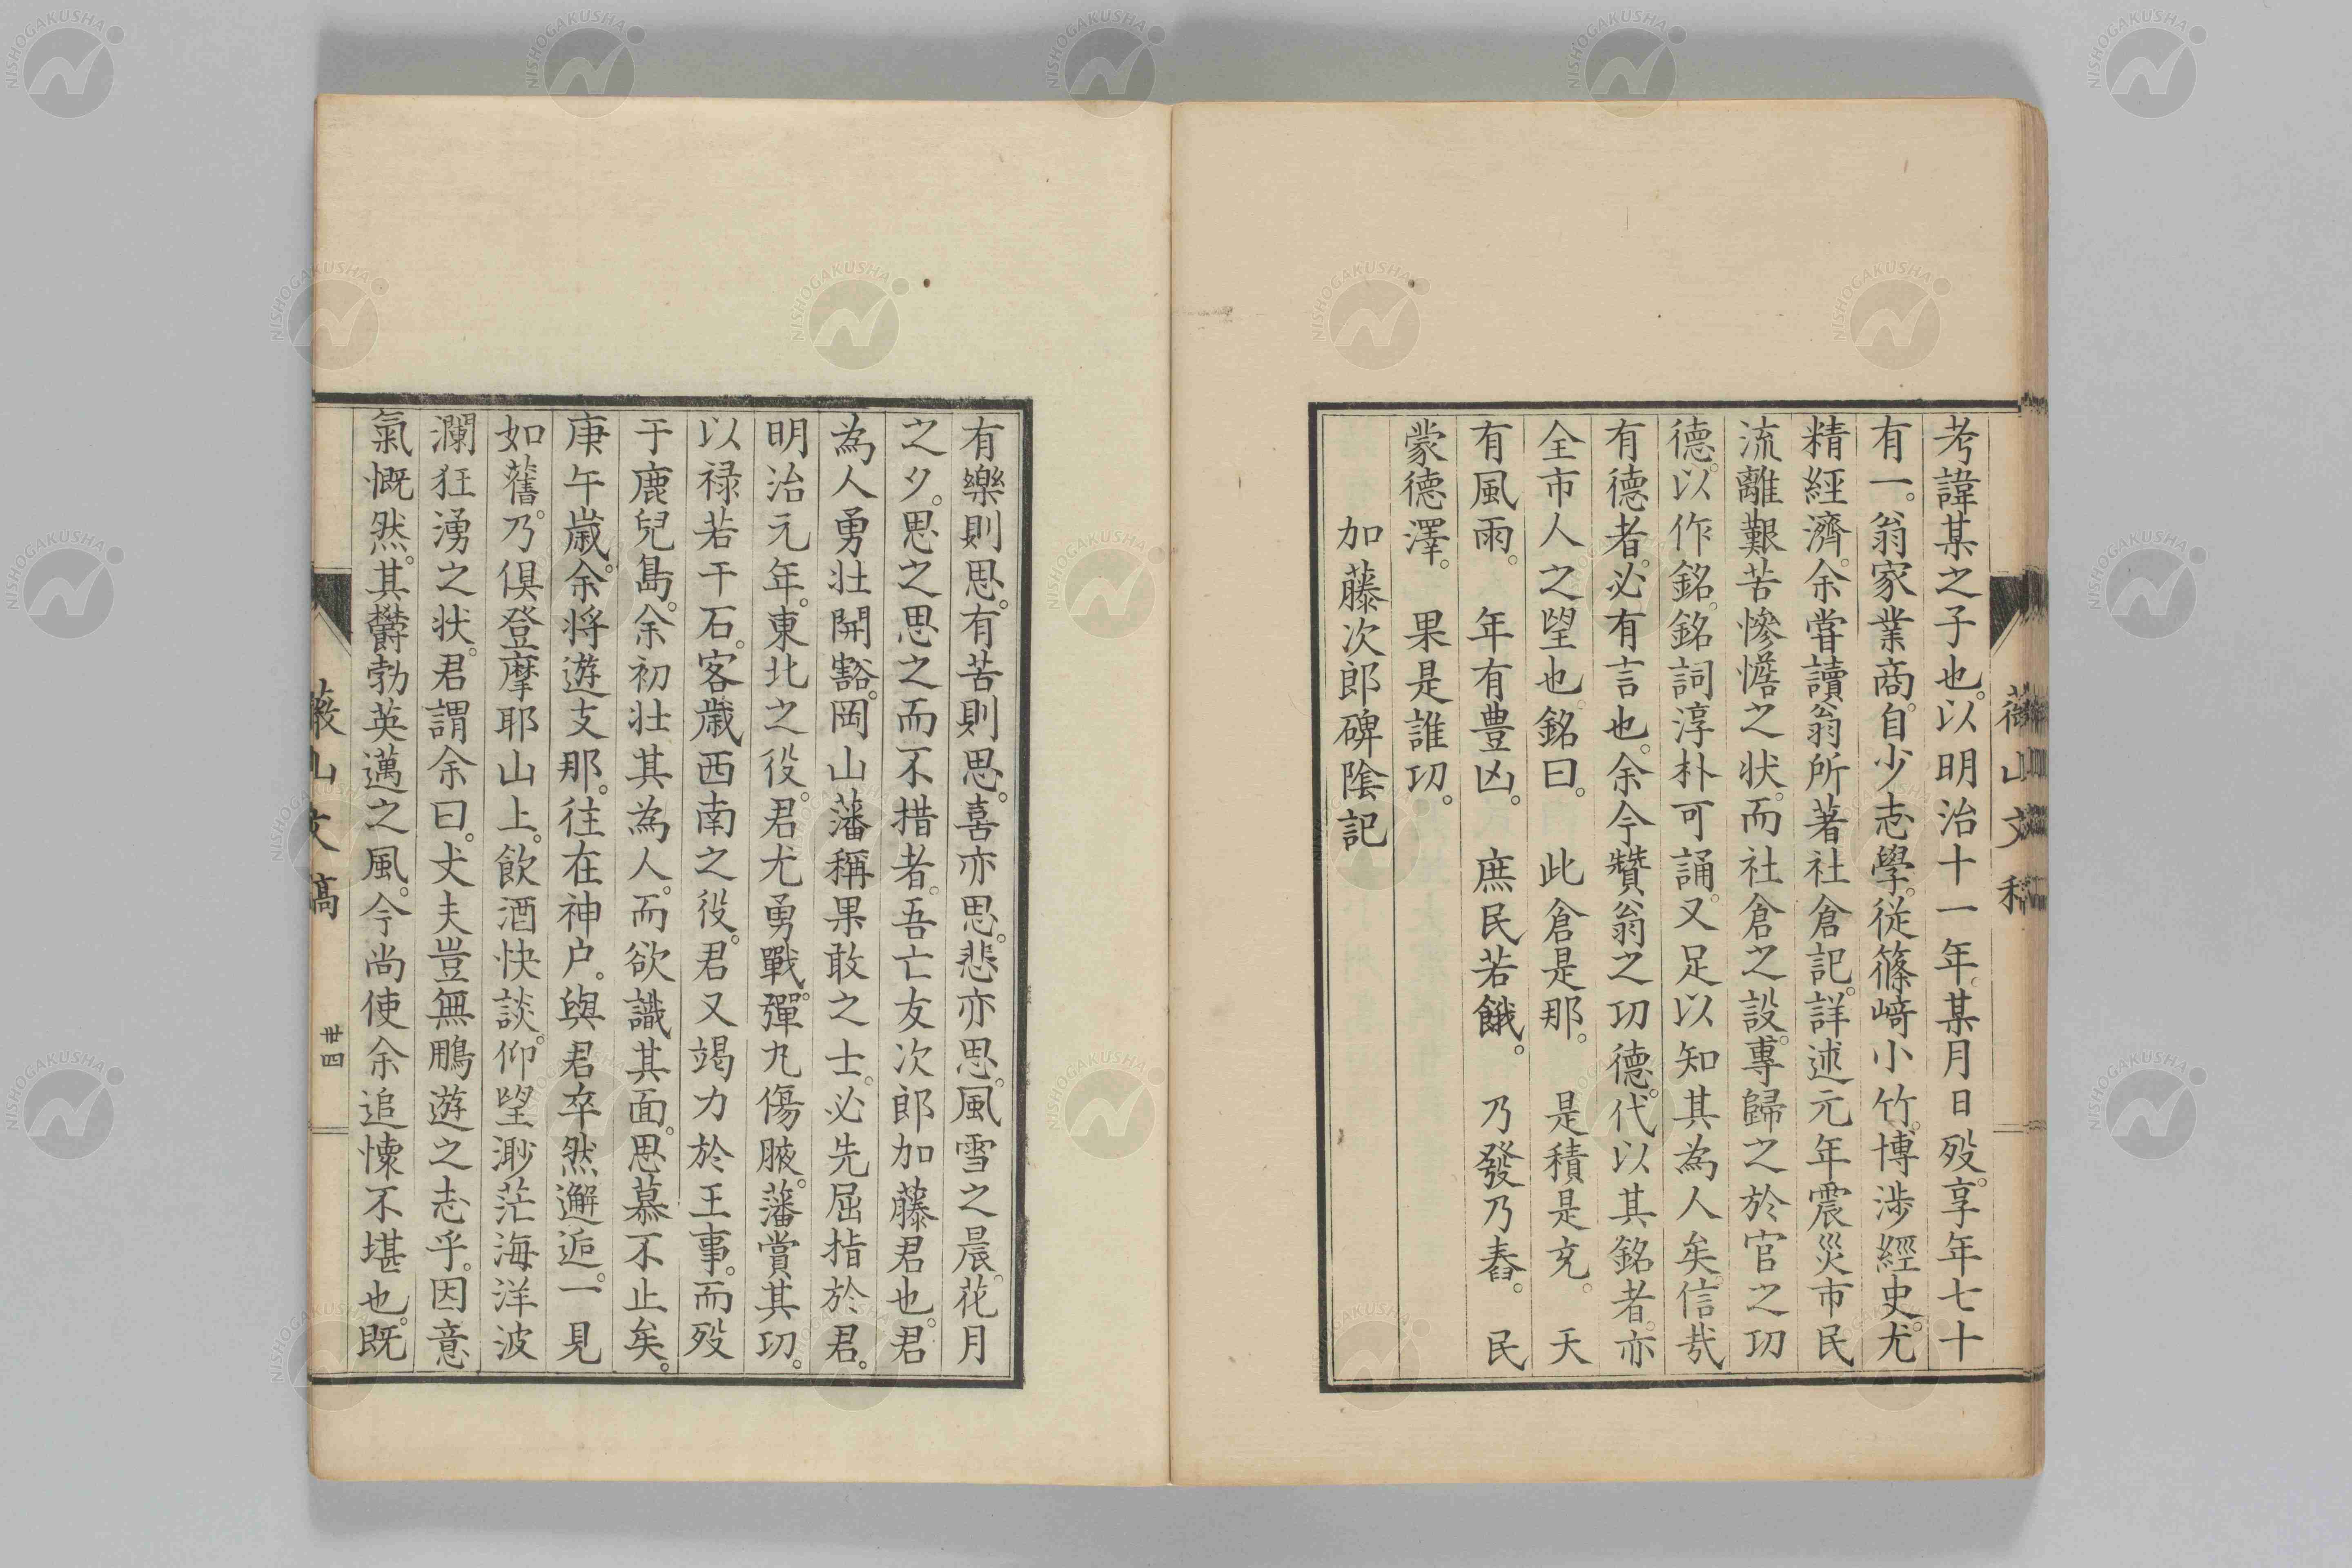 考諱某之子也。以明治十一年。某月日歿。享年七十
有一。翁家業商。自少志學。従篠﨑小竹。博渉經史。尤
精經濟。余甞讀翁所著社倉記。詳述元年震災市民
流離艱苦慘憺之状。而社倉之設。專歸之於官之功
德。以作銘。銘詞淳朴可誦。又足以知其為人矣。信㢤
有德者。必有言也。余今贊翁之功德。代以其銘者。亦
全市人之望也。銘曰。　此倉是那。　是積是充。　天
有風雨。　年有豊凶。　庶民若餓。　乃發乃舂。　民
蒙德澤。　果是誰功。
加藤次郎碑陰記
有樂則思。有苦則思。喜亦思。悲亦思。風雪之晨。花月
之夕。思之思之而不措者。吾亡友次郎加藤君也。君
為人勇壮開豁。岡山藩稱果敢之士。必先屈指於君。
明治元年。東北之役。君尤勇戰。彈丸傷腋。藩賞其功。
以禄若干石。客歳西南之役。君又竭力於王事。而歿
于鹿兒島。余初壮其為人。而欲識其面。思慕不止矣。
庚午歳。余将遊支那。往在神户。與君卒然邂逅。一見
如舊。乃倶登摩耶山上。飲酒快談。仰望渺茫海洋波
瀾狂湧之状。君謂余曰。丈夫豈無鵬遊之志乎。因意
氣慨然。其欝勃英邁之風。今尚使余追懐不堪也。既
山文稿
卅四
NISHOGAKUSHA